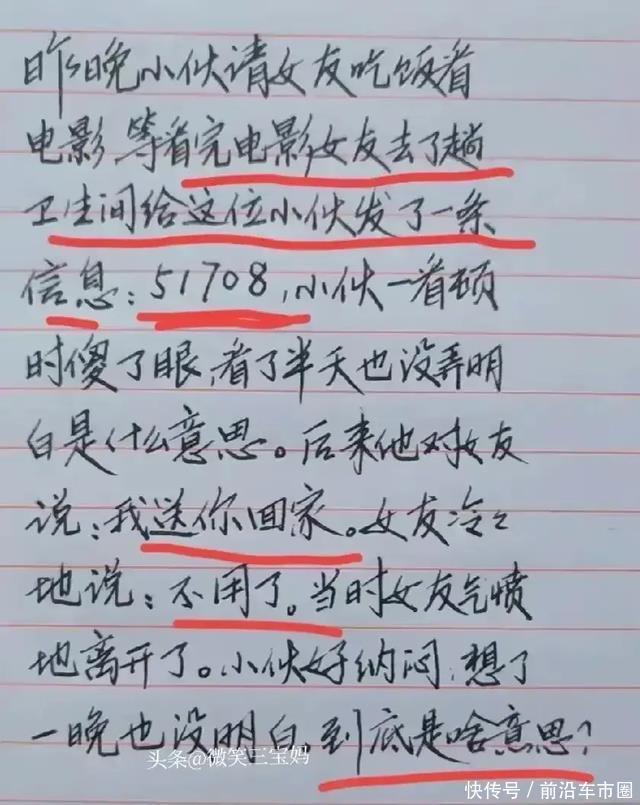 昨晚小伙请女友吃饭看
电影,等看完电影女友去了趟
卫生间给这位小伙发了一条
信息:51708,小伙一看顿
时傻了眼,看了半天也没弄明
白是什么意思。后来他对女友
说:我送你回家。女友冷々
地说:不用了。当时女友气愤
地离开了。小伙好纳闷,想了
一晚也没明白,到底是啥意思?
头条@微笑三宝妈
快传号/前沿车市圈